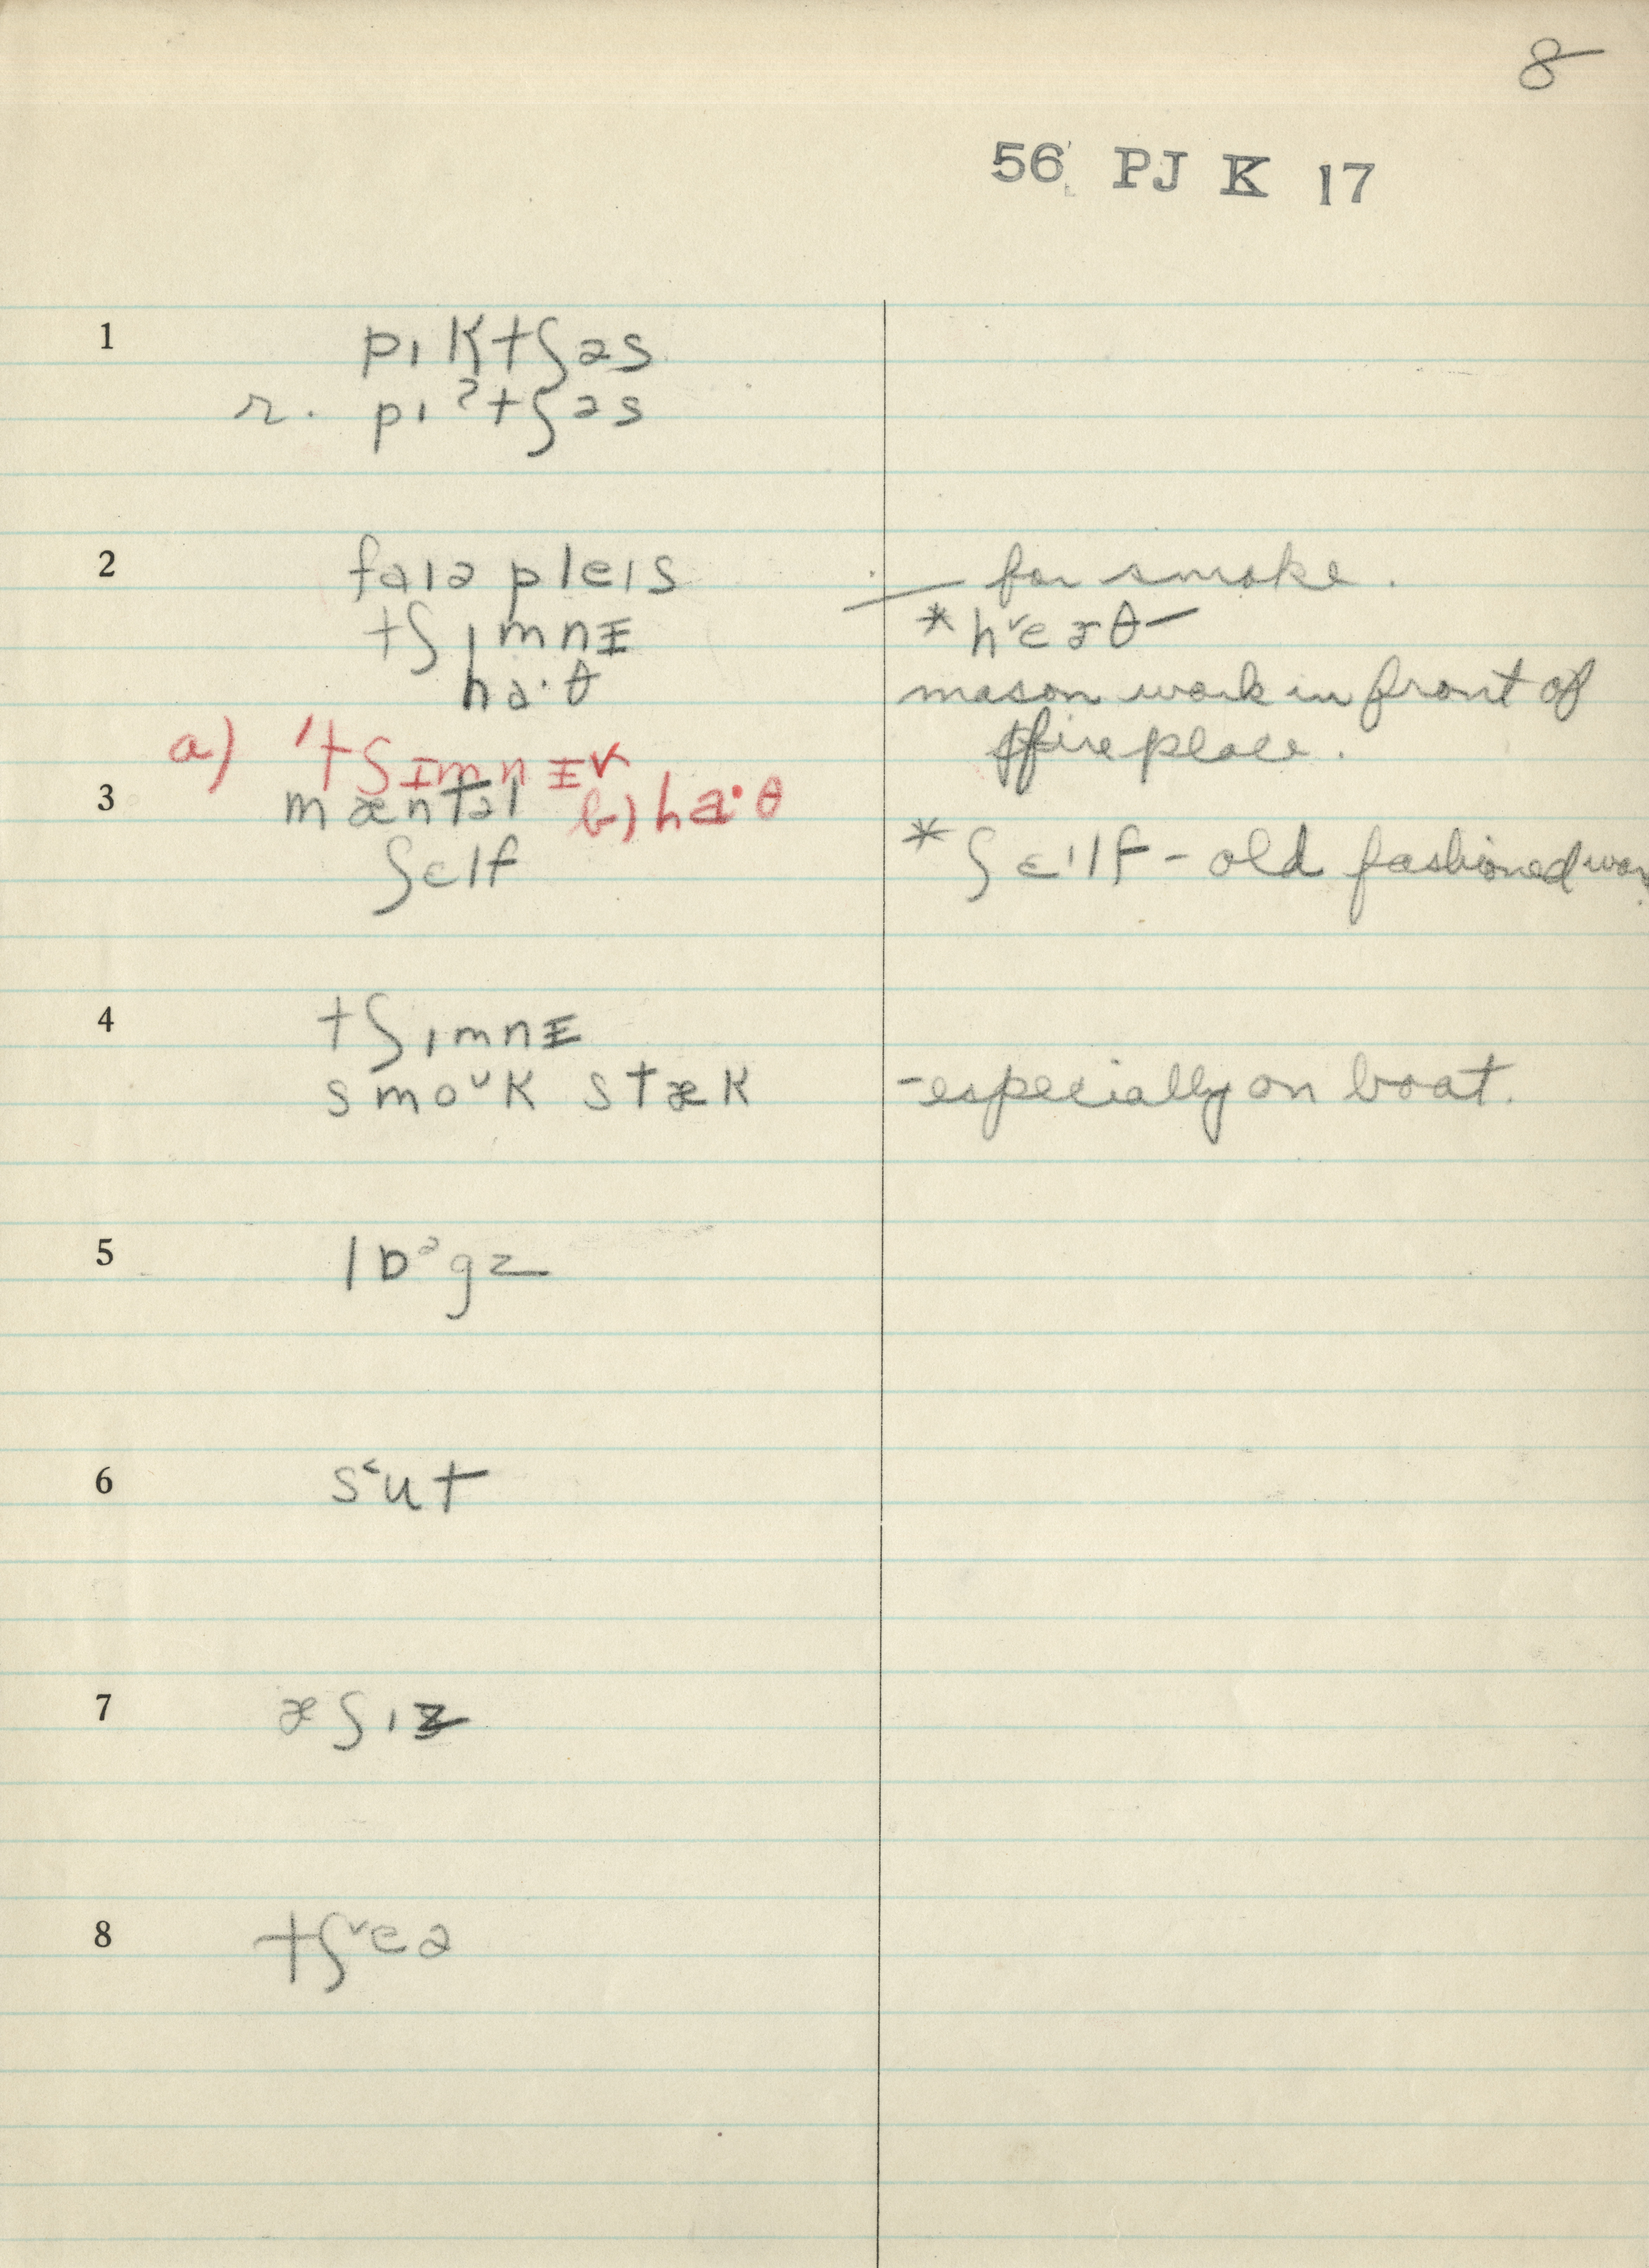 8
56 PJ K 17
1 pɪktʃəs
r. pɪʔtʃəs
2 faɪə pleɪs — for smoke.
tʃɪmnɪ * hᵛɛɚθ —
ha·θ mason work in front of
a) 'tʃɪmnɪ˅ fireplace.
3 mæntəl b) ha·θ
ʃɛlf * ʃɛ'lf - old fashioned
4 tʃɪmnɪ
smoᶷk stæk - especially on boat.
5 lɒᵊgz
6 s˂ut
7 æʃɪz
8 tʃᵛeə